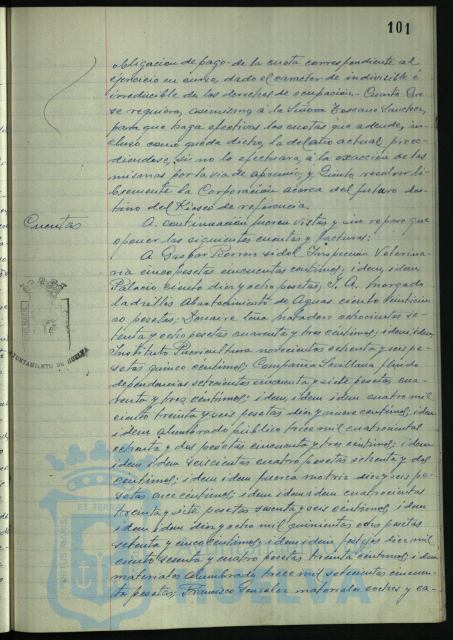 101
obligacion de pago de la cuota correspondiente al
ejercicio en curso, dado el caracter de indivisible é
irreducible de los derechos de ocupación.- Cuarto Que
se requiera, asimismo, á la Señora Toscano Sanchez,
para que haga efectivas las cuotas que adeude, in-
cluso como queda dicho, la del año actual, proce-
diendose, si no lo efectuara, á la exacción de las
mismas por la vía de apremio; y Quinto resolver li-
bremente la Corporación acerca del futuro des-
tino del Kiosco de referencia.
Cuentas
A continuación fueron vistas y sin reparo que
oponer las siguientes cuentas y facturas:
A Gaspar formol Inspección Veterina-
ria cinco pesetas cincuenta centimos; idem, idem
Palacio ciento diez y ocho pesetas; J. A. Morgado
ladrillos Abastecimiento de Aguas ciento
pesetas; leña matadero ochocientas se-
tenta y ocho pesetas cuarenta y tres centimos; idem, idem,
Instituto Puericultura novecientas ochenta y seis pe-
setas quince centimos; Compañia Sevillana fluido
dependencias setecientas cincuenta y siete pesetas cua-
renta y tres centimos; idem, idem, idem cuatro mil
ciento treinta y seis pesetas diez y nueve centimos; idem
idem alumbrado público trece mil cuatrocientas
ochenta y dos pesetas cincuenta y tres centimos; idem
idem, idem seiscientas cuatro pesetas setenta y dos
centimos; idem idem fuerza motriz diez y seis pe-
setas once centimos; idem idem idem cuatrocientas
treinta y siete pesetas sesenta y seis centimos; idem
idem idem diez y ocho mil quinientas ocho pesetas
setenta y cinco centimos; idem idem festejos diez mil
ciento sesenta y cuatro pesetas treinta centimos; idem
materiales alumbrado trece mil setecientas cincuen-
ta pesetas; Francisco Gonzalez materiales coches y ca-
AYUNTAMIENTO DE HUELVA
HUELVA